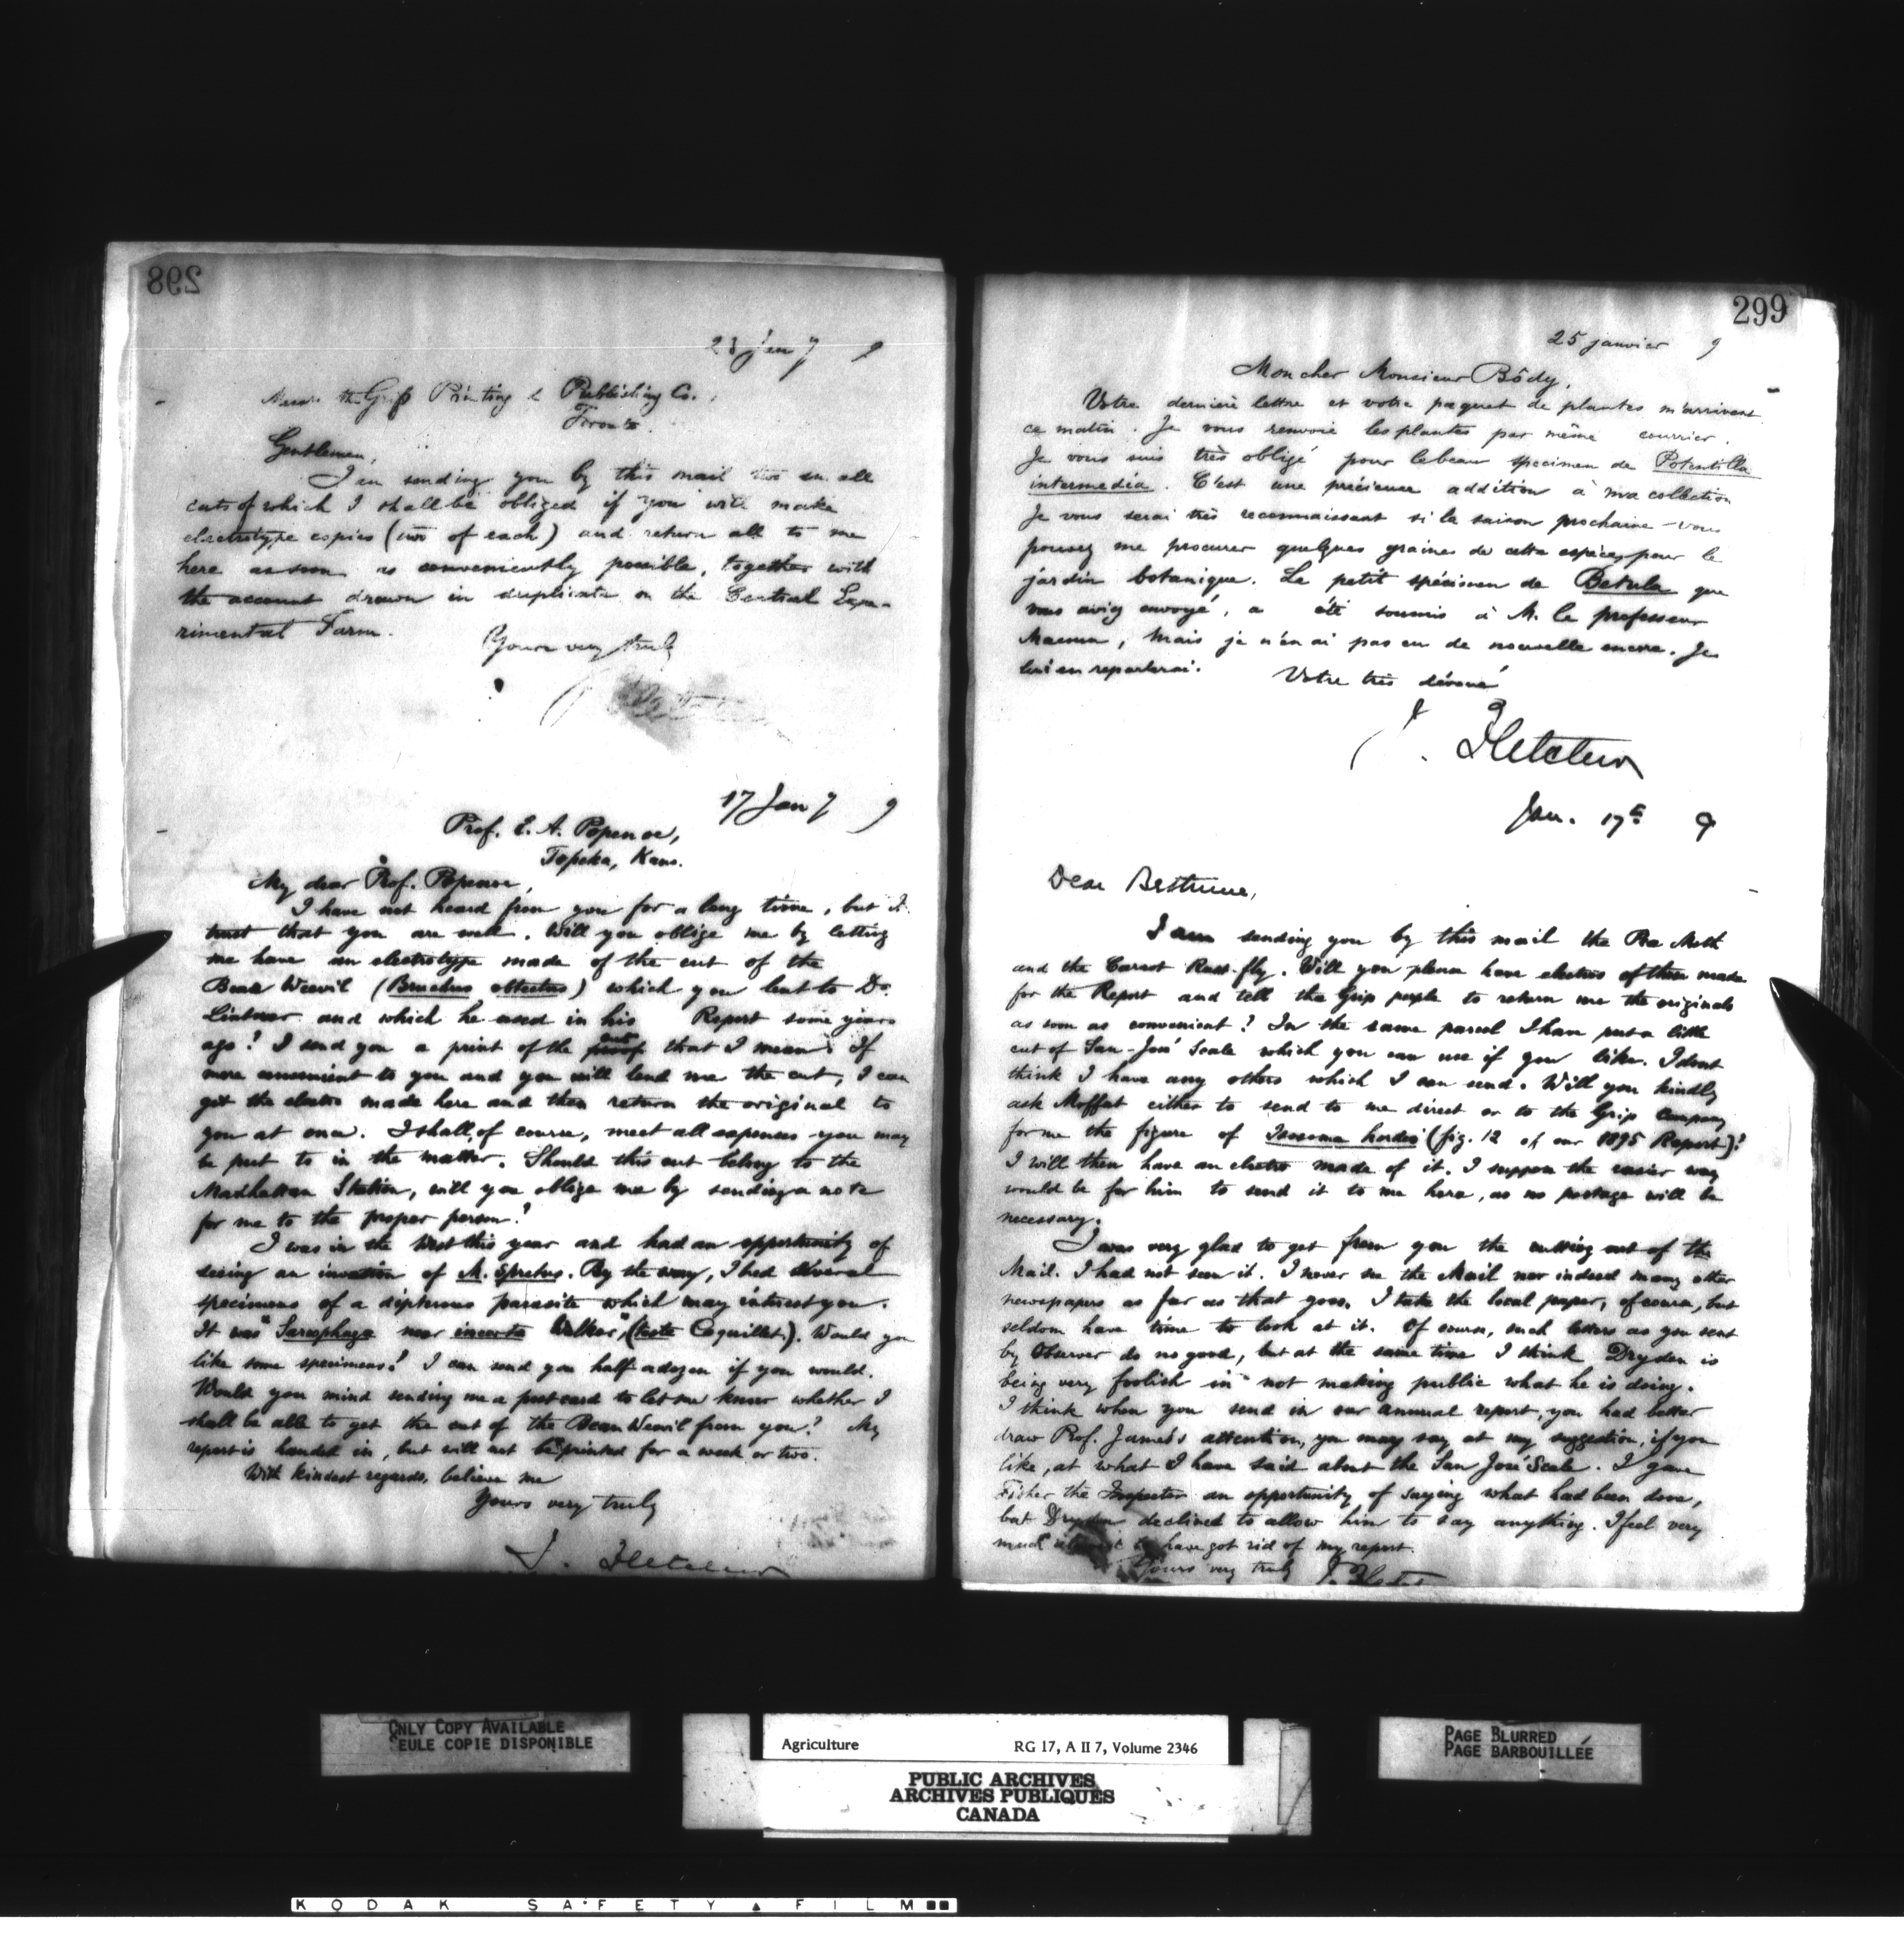 298
23 Jan 7 9
the Grip Printing & Publishing Co.,
Toronto.
Gentlemen,
I am sending you by this mail two small
cuts of which I shall be obliged if you will make
electrotype copies (two of each) and return all to me
here as soon as conveniently possible, together with
the account drawn in duplicate on the Central Expe-
rimental Farm.
Yours very truly
17 Jan 7 9
Prof. E. A. Popenoe,
Topeka, Kans.
My dear Prof. Popenoe,
I have not heard from you for a long time, but I
trust that you are well. Will you oblige me by letting
me have an electrotype made of the cut of the
Bean Weevil (Bruchus obtectus) which you lent to Dr.
Lintner and which he used in his Report some years
ago? I send you a print of the cut that I mean. If
more convenient to you and you will lend me the cut, I can
get the electro made here and then return the original to
you at once. I shall, of course, meet all expenses you may
be put to in the matter. Should this cut belong to the
Manhattan Station, will you oblige me by sending a note
for me to the proper person?
I was in the West this year and had an opportunity of
seeing an invasion of M. spretus. By the way, I bred several
specimens of a dipterous parasite which may interest you.
It was "Sarcophaga near incerta Walker", (teste Coquillet). Would you
like some specimens? I can send you half a dozen if you would.
Would you mind sending me a postcard to let me know whether I
shall be able to get the cut of the Bean Weevil from you? My
report is handed in, but will not be printed for a week or two.
With kindest regards, believe me
Yours very truly
J. Fletcher
299
25 janvier 9
Mon cher Monsieur Bôdy,
Votre dernière lettre et votre paquet de plantes m'arrivent
ce matin. Je vous renvoie les plantes par même courrier.
Je vous suis très obligé pour le beau specimen de Potentilla
intermedia. C'est une précieuse addition à ma collection
Je vous serai très reconnaissant si la saison prochaine vous
pouvez me procurer quelques graines de cette espèce, pour le
jardin botanique. Le petit spécimen de Betula que
vous aviez envoyé, a été soumis à M. le professeur
Macoun, mais je n'en ai pas eu de nouvelle encore. Je
lui en reparlerai.
Votre très dévoué
J. Fletcher
Jan. 17th 9
Dear Bethune,
I am sending you by this mail the Pea Moth
and the Carrot Rust-fly. Will you please have electros of them made
for the Report and tell the Grip people to return me the originals
as soon as convenient? In the same parcel I have put a little
cut of San-José Scale which you can use if you like. I dont
think I have any others which I can send. Will you kindly
ask Moffat either to send to me direct or to the Grip Company
for me the figure of Isosoma hordei (fig. 12 of our 1895 Report)?
I will then have an electro made of it. I suppose the easier way
would be for him to send it to me here, as no postage will be
necessary.
I was very glad to get from you the cutting out of the
Mail. I had not seen it. I never see the Mail nor indeed many other
newspapers as far as that goes. I take the local paper, of course, but
seldom have time to look at it. Of course, such letters as you sent
by Observer do no good, but at the same time I think Dryden is
being very foolish in not making public what he is doing.
I think when you send in our annual report, you had better
draw Prof. James's attention, you may say at my suggestion, if you
like, at what I have said about the San José Scale. I gave
Fisher the Inspector an opportunity of saying what had been done,
but Dryden declined to allow him to say anything. I feel very
much to have got rid of my report.
Yours very truly
J. Fletcher
ONLY COPY AVAILABLE
SEULE COPIE DISPONIBLE
Agriculture RG 17, A II 7, Volume 2346
PUBLIC ARCHIVES
ARCHIVES PUBLIQUES
CANADA
PAGE BLURRED
PAGE BARBOUILLÉE
KODAK SAFETY FILM